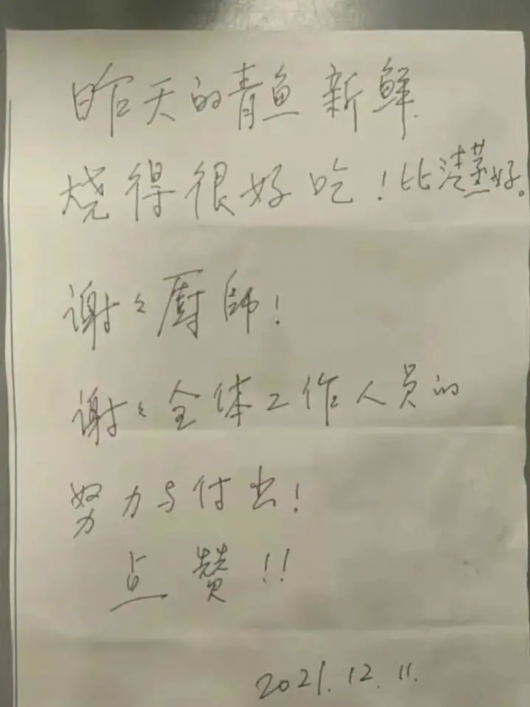 昨天的青鱼新鲜
烧得很好吃！比清蒸好。
谢々厨師！
谢々全体工作人员的
努力与付出！
点赞！！
2021.12.11.